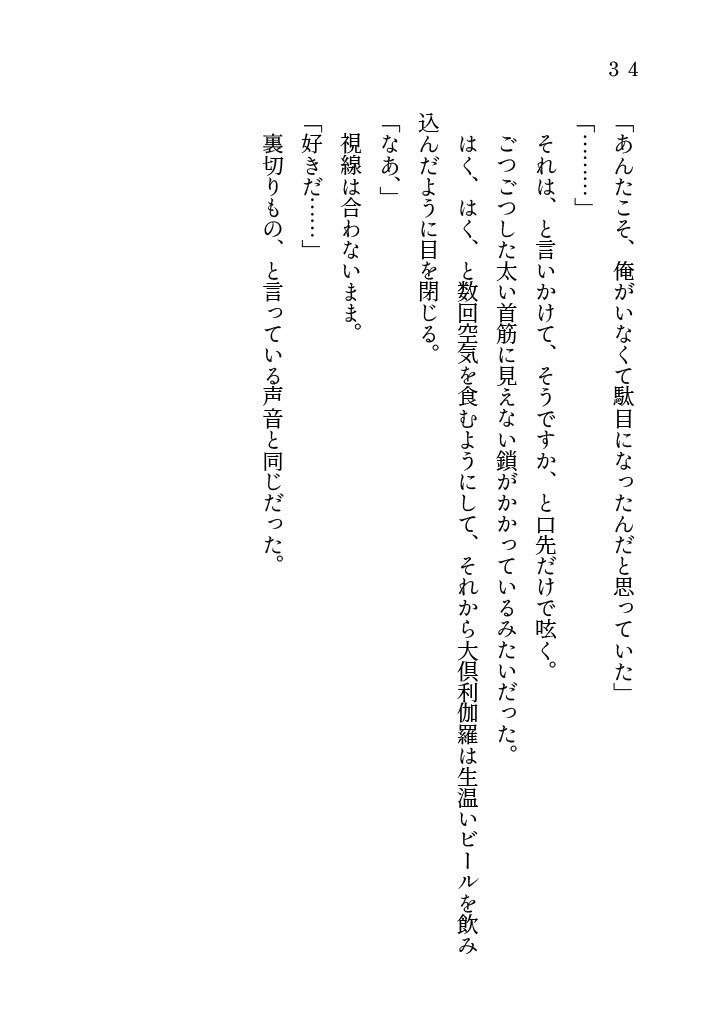 34
「あんたこそ、俺がいなくて駄目になったんだと思っていた」
「………」
それは、と言いかけて、そうですか、と口先だけで呟く。
ごつごつした太い首筋に見えない鎖がかかっているみたいだった。
はく、はく、と数回空気を食むようにして、それから大倶利伽羅は生温いビールを飲み
込んだように目を閉じる。
「なあ、」
視線は合わないまま。
「好きだ……」
裏切りもの、と言っている声音と同じだった。